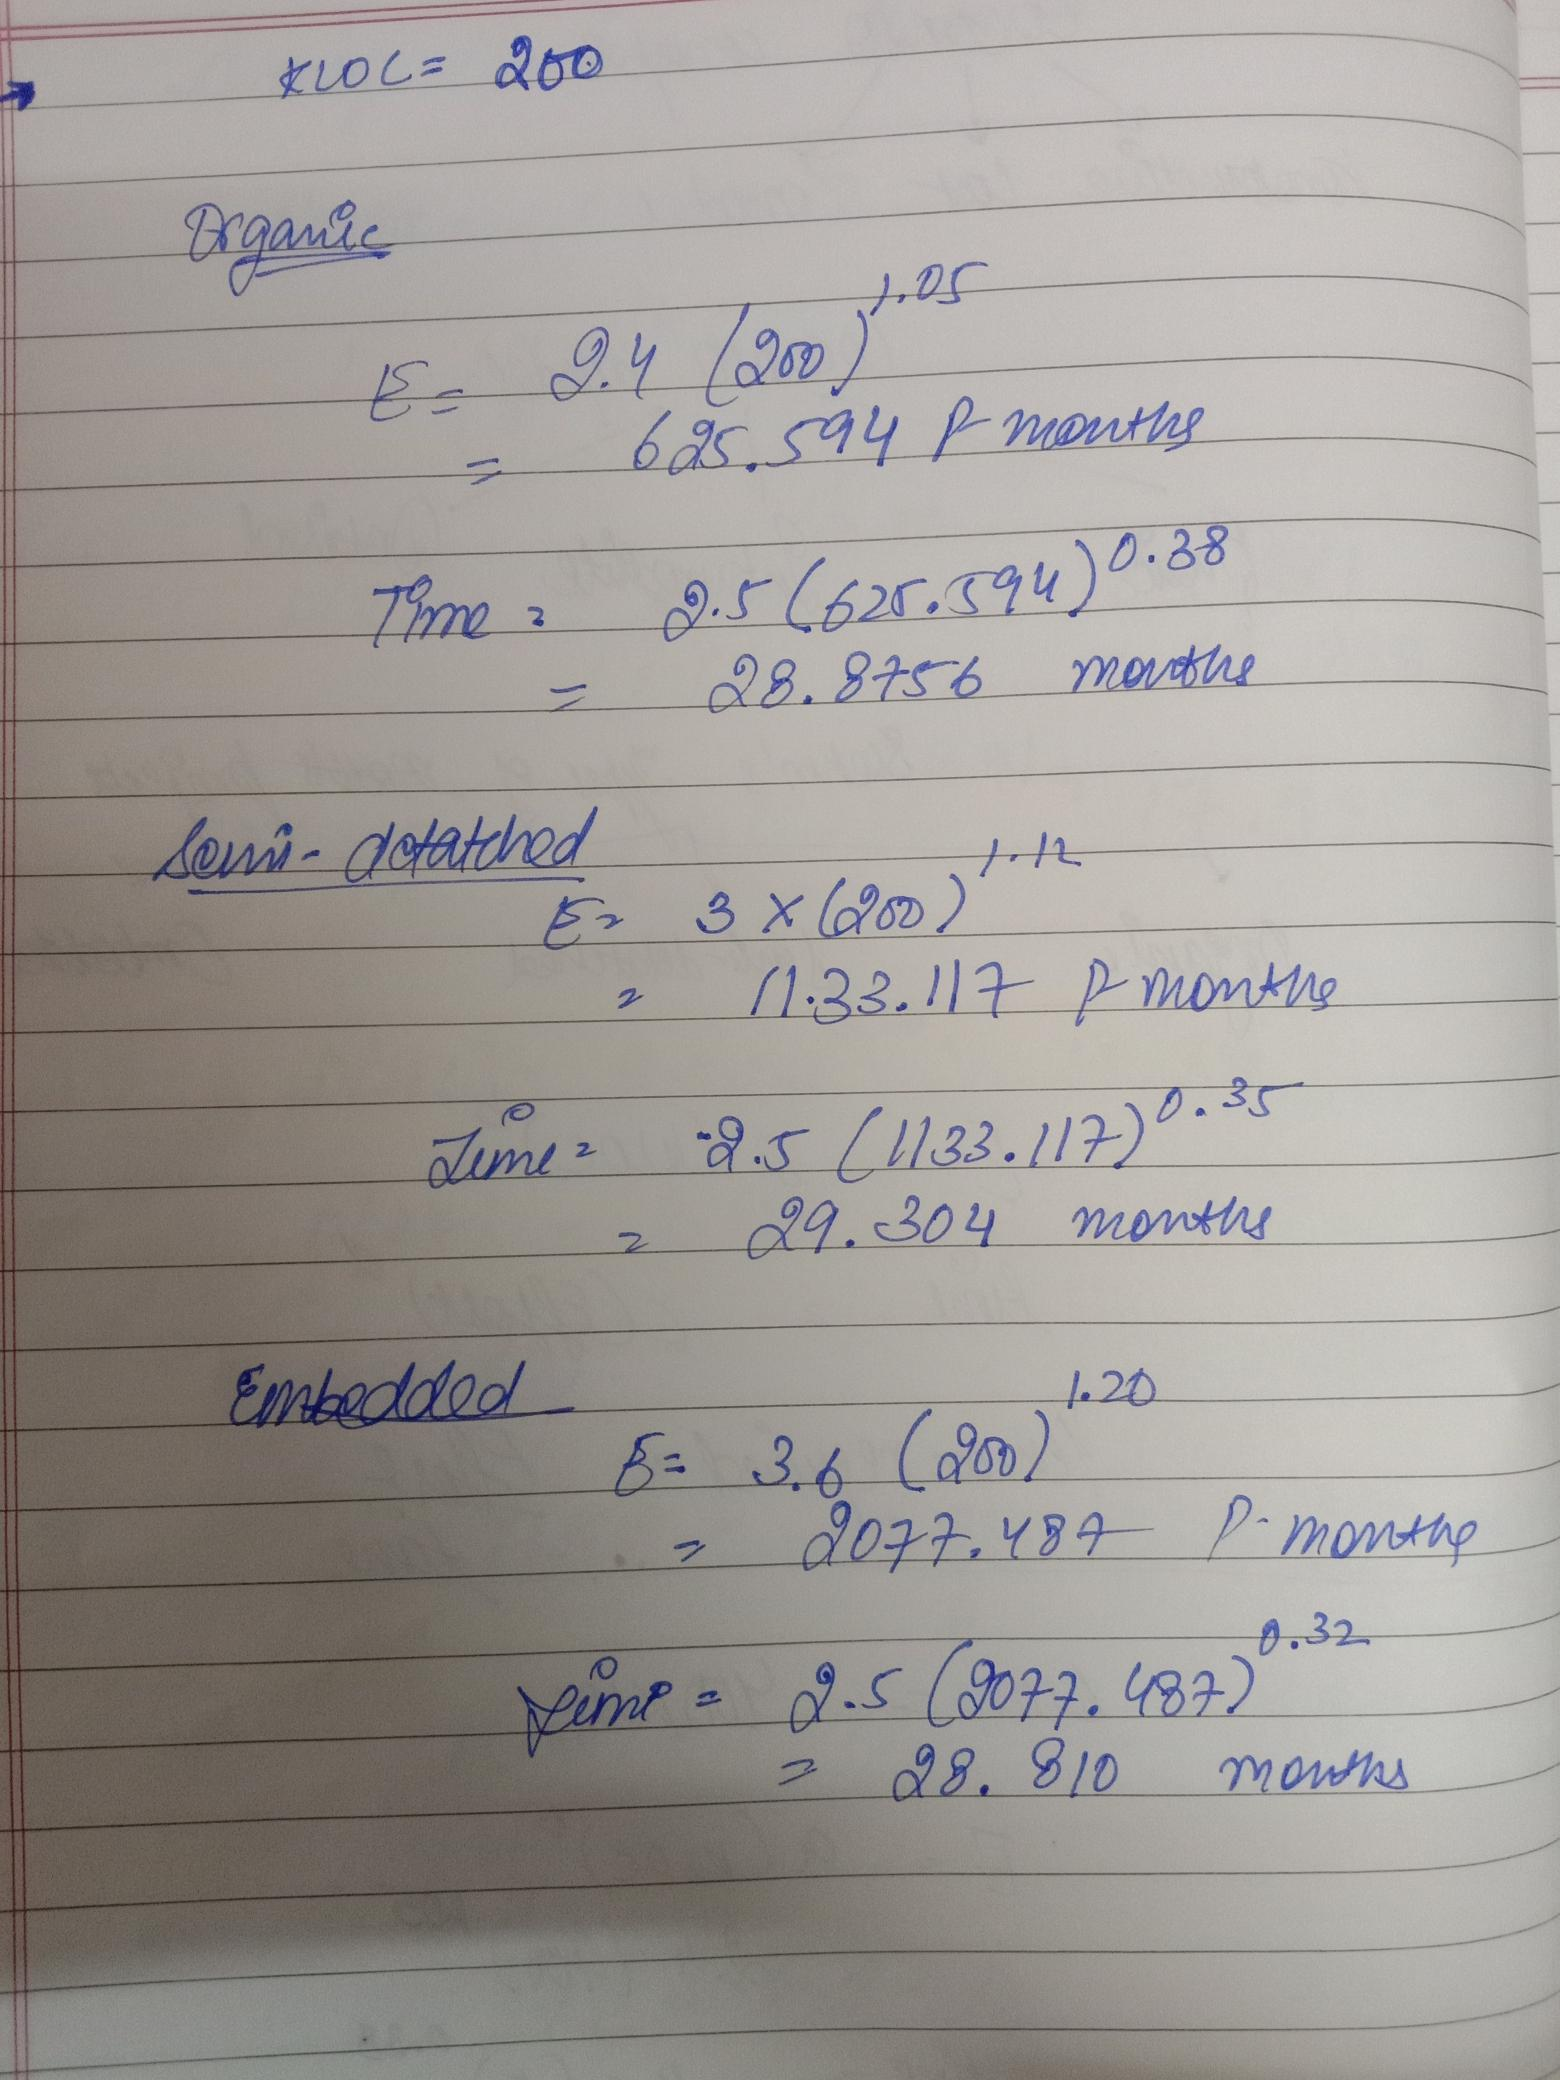 KLOC = 200
Organic
E = 2.4 (200)^1.05
= 625.594 P months
Time = 2.5 (625.594)^0.38
= 28.8756 months
Semi-detatched
E = 3 × (200)^1.12
= 1133.117 P months
Time = 2.5 (1133.117)^0.35
= 29.304 months
Embedded
E = 3.6 (200)^1.20
= 2077.487 P-months
Time = 2.5 (2077.487)^0.32
= 28.810 months